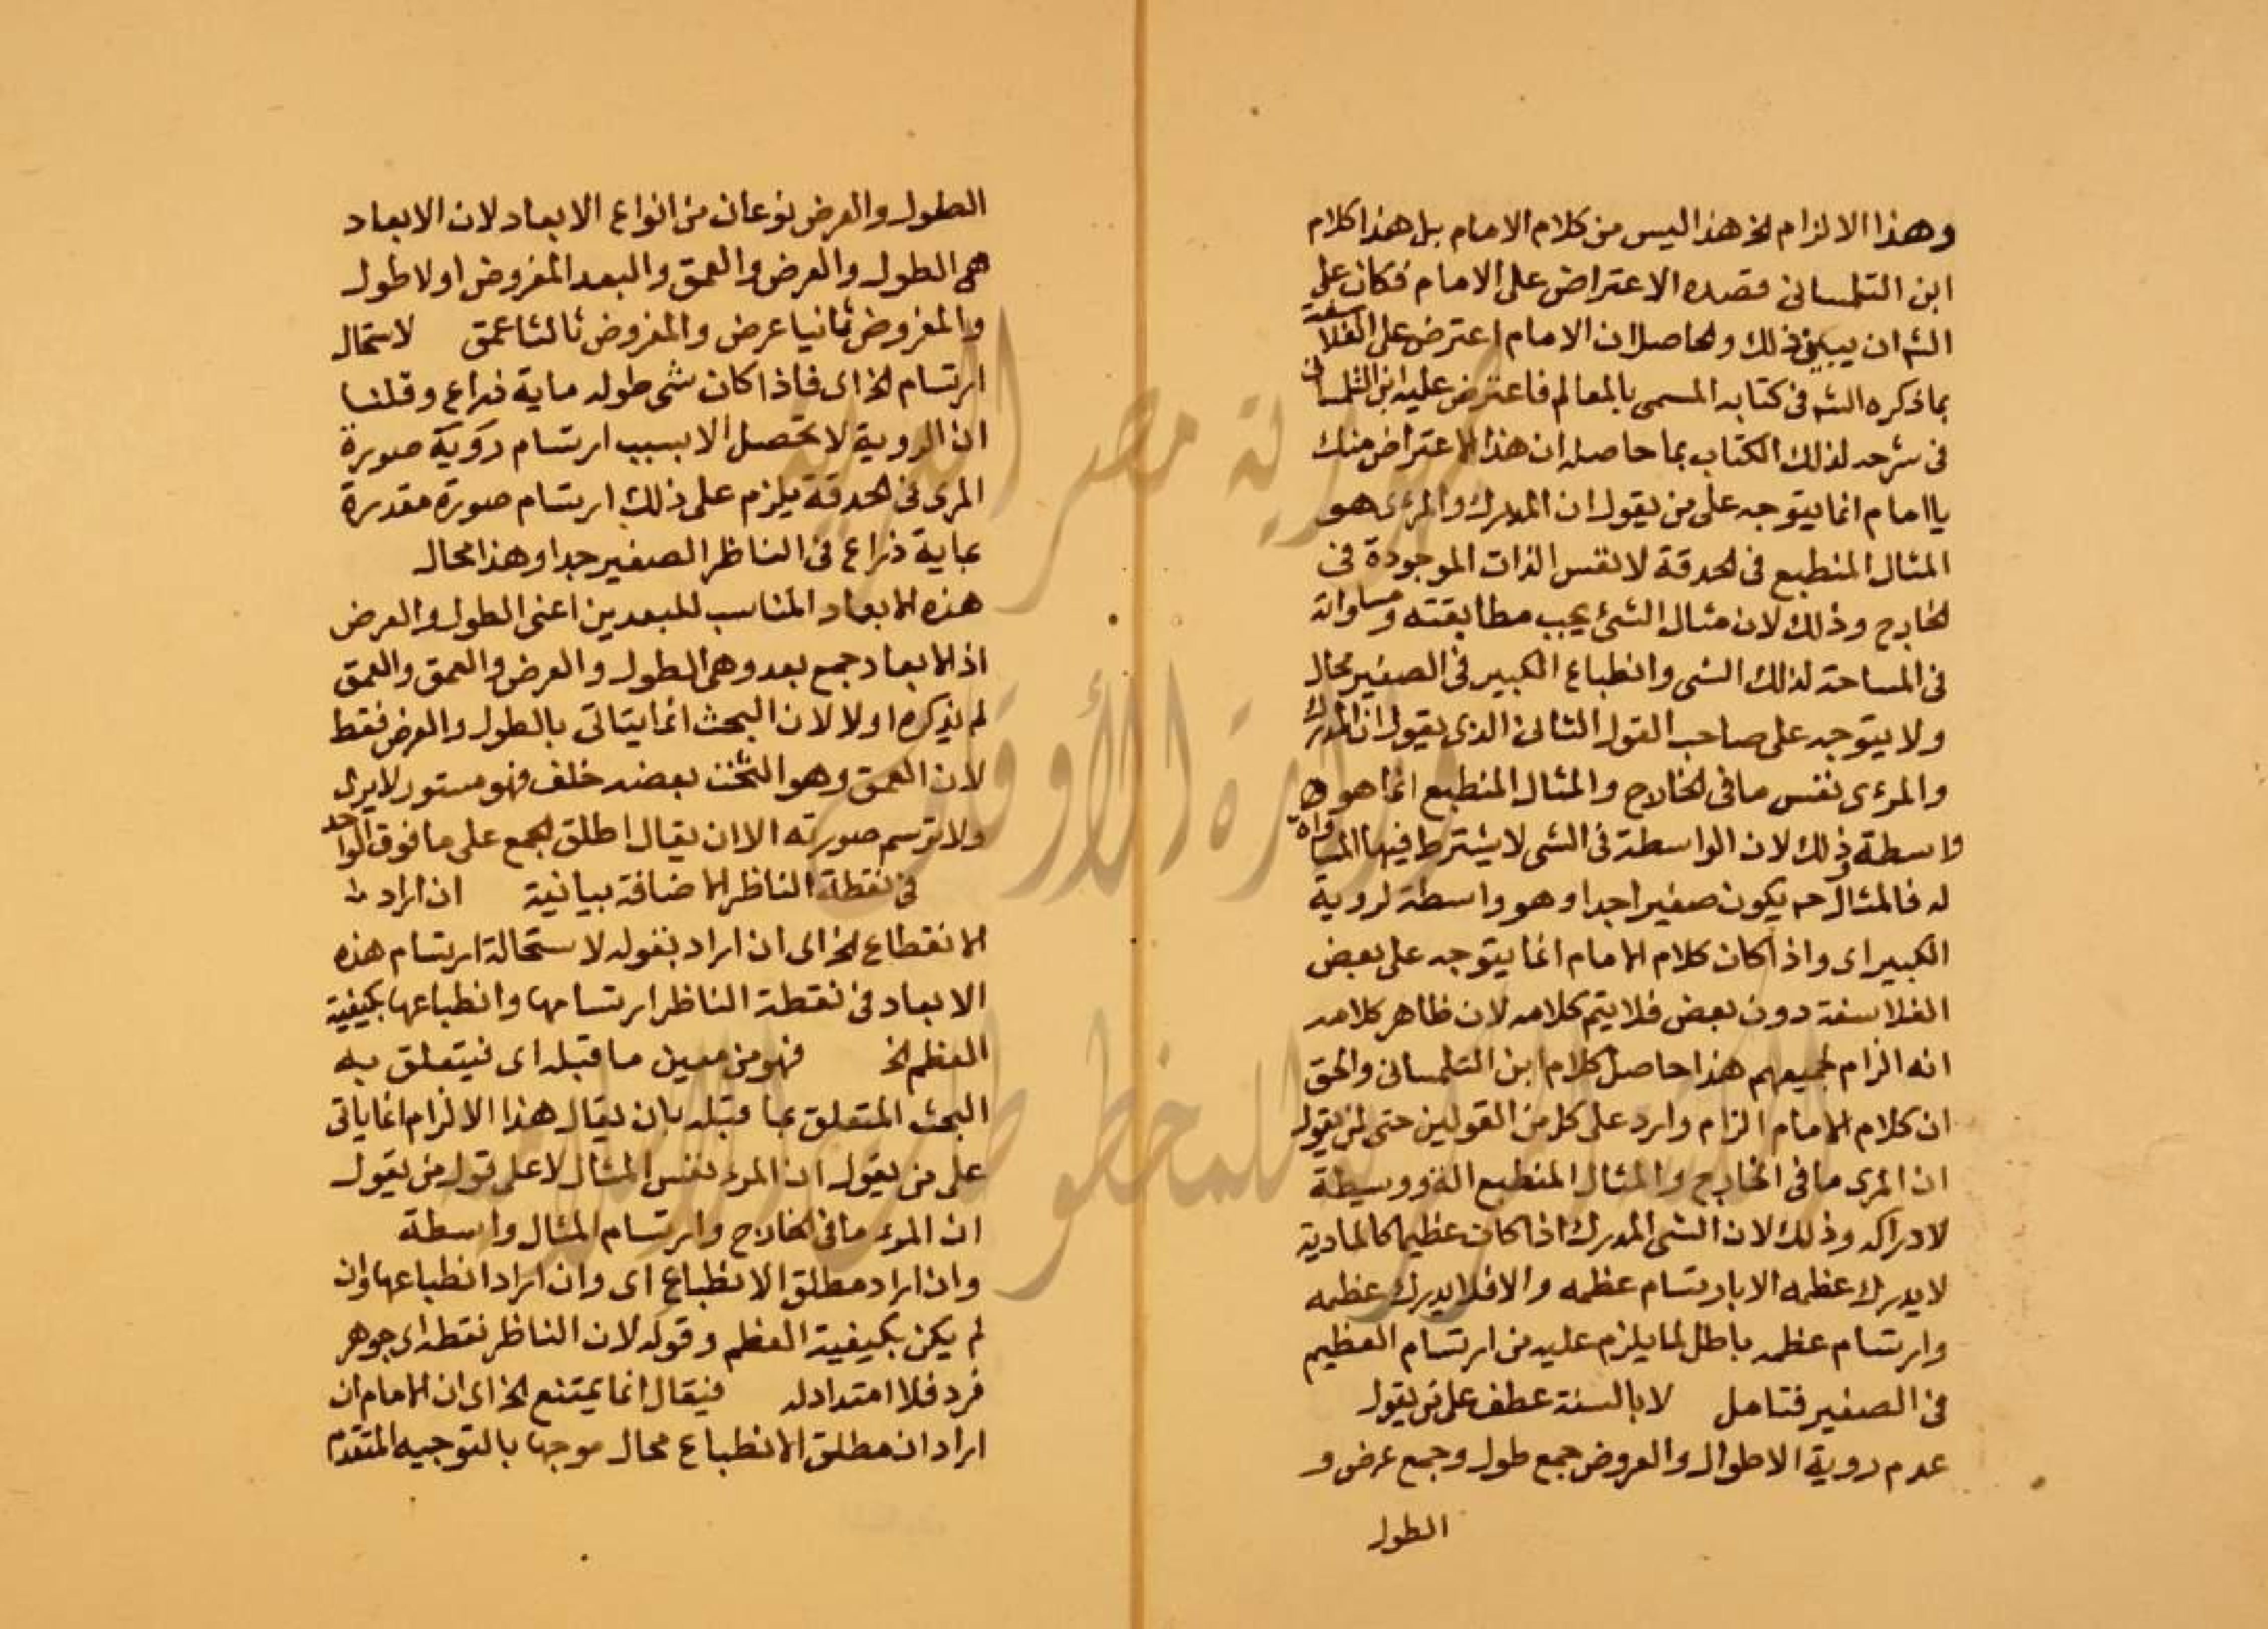 وهذا الالزام الخ هذا ليس من كلام الامام بل هذا كلام
ابن التلمسانى قصده الاعتراض على الامام فكان على
الشم ان يبين ذلك والحاصل ان الامام اعترض على الفلاسفة
بما ذكره الشم فى كتابه المسمى بالمعالم فاعترض عليه ابن التلمسانى
فى شرحه لذلك الكتاب بما حاصله ان هذا الاعتراض منك
يا امام انما يتوجه على من يقول ان المدرك والمرءى هو
المثال المنطبع فى الحدقة لا نفس الذات الموجودة فى
الخارج وذلك لان مثال الشئ يجب مطابقته ومساواته
فى المساحة لذلك الشى وانطباع الكبير فى الصغير محال
ولا يتوجه على صاحب القول الثانى الذى يقول ان المدرك
والمرءى نفس ما فى الخارج والمثال المنطبع انما هو
واسطة وذلك لان الواسطة فى الشى لا يشترط فيها المساواة
له فالمثال ح يكون صغيرا جدا وهو واسطة لروية
الكبير اى واذا كان كلام الامام انما يتوجه على بعض
الفلاسفة دون بعض فلا يتم كلامه لان ظاهر كلامه
انه الزام لجميعهم هذا حاصل كلام ابن التلمسانى والحق
ان كلام الامام الزام وارد على كل من القولين حتى لمن يقول
ان المرى ما فى الخارج والمثال المنطبع الة ووسيطة
لادراكه وذلك لان الشى المدرك اذا كان عظيما كالمادية
لا يدرك عظمه الا بارتسام عظمه والا فلا يدرك عظمه
وارتسام عظمه باطل لما يلزم عليه من ارتسام العظيم
فى الصغير فتامل لا بالسنة عطف على من يقول
عدم روية الاطوال والعروض جمع طول وجمع عرض و
الطول
الطول والعرض نوعان من انواع الابعاد لان الابعاد
هى الطول والعرض والعمق والبعد المفروض اولا طول
والمفروض ثانيا عرض والمفروض ثالثا عمق لاستحال
ارتسام الخ اى فاذا كان شى طوله ماية ذراع وقلنا
ان الروية لا تحصل الا بسبب ارتسام روية صورة
المرى فى الحدقة يلزم على ذلك ارتسام صورة مقدرة
بماية ذراع فى الناظر الصغير جدا وهذا محال
هذه الابعاد المناسب للبعدين اعنى الطول والعرض
اذ الابعاد جمع بعد وهى الطول والعرض والعمق والعمق
لم يذكره اولا لان البحث انما يتاتى بالطول والعرض فقط
لان العمق وهو الثخن بعضه خلف فهو مستور لا يرى
ولا ترسم صورته الا ان يقال اطلق الجمع على ما فوق الواحد
فى نقطة الناظر الاضافة بيانية ان اراد
الانقطاع الخ اى ان اراد بقوله لاستحالة ارتسام هذه
الابعاد فى نقطة الناظر ارتسامها وانطباعها بكيفية
العظم الخ فهو من معين ما قبله اى فيتعلق به
البحث المتعلق بما قبله بان يقال هذا الالزام انما ياتى
على من يقول ان المرء نفس المثال لا على قول من يقول
ان المرء ما فى الخارج وارتسام المثال واسطة
وان اراد مطلق الانطباع اى وان اراد انطباعها وان
لم يكن بكيفية العظم وقوله لان الناظر نقطة اى جوهر
فرد فلا امتداد له فيقال انما يمتنع الخ اى ان الامام ان
اراد ان مطلق الانطباع محال موجها بالتوجيه المتقدم
جمهورية مصر العربية
وزارة الأوقاف